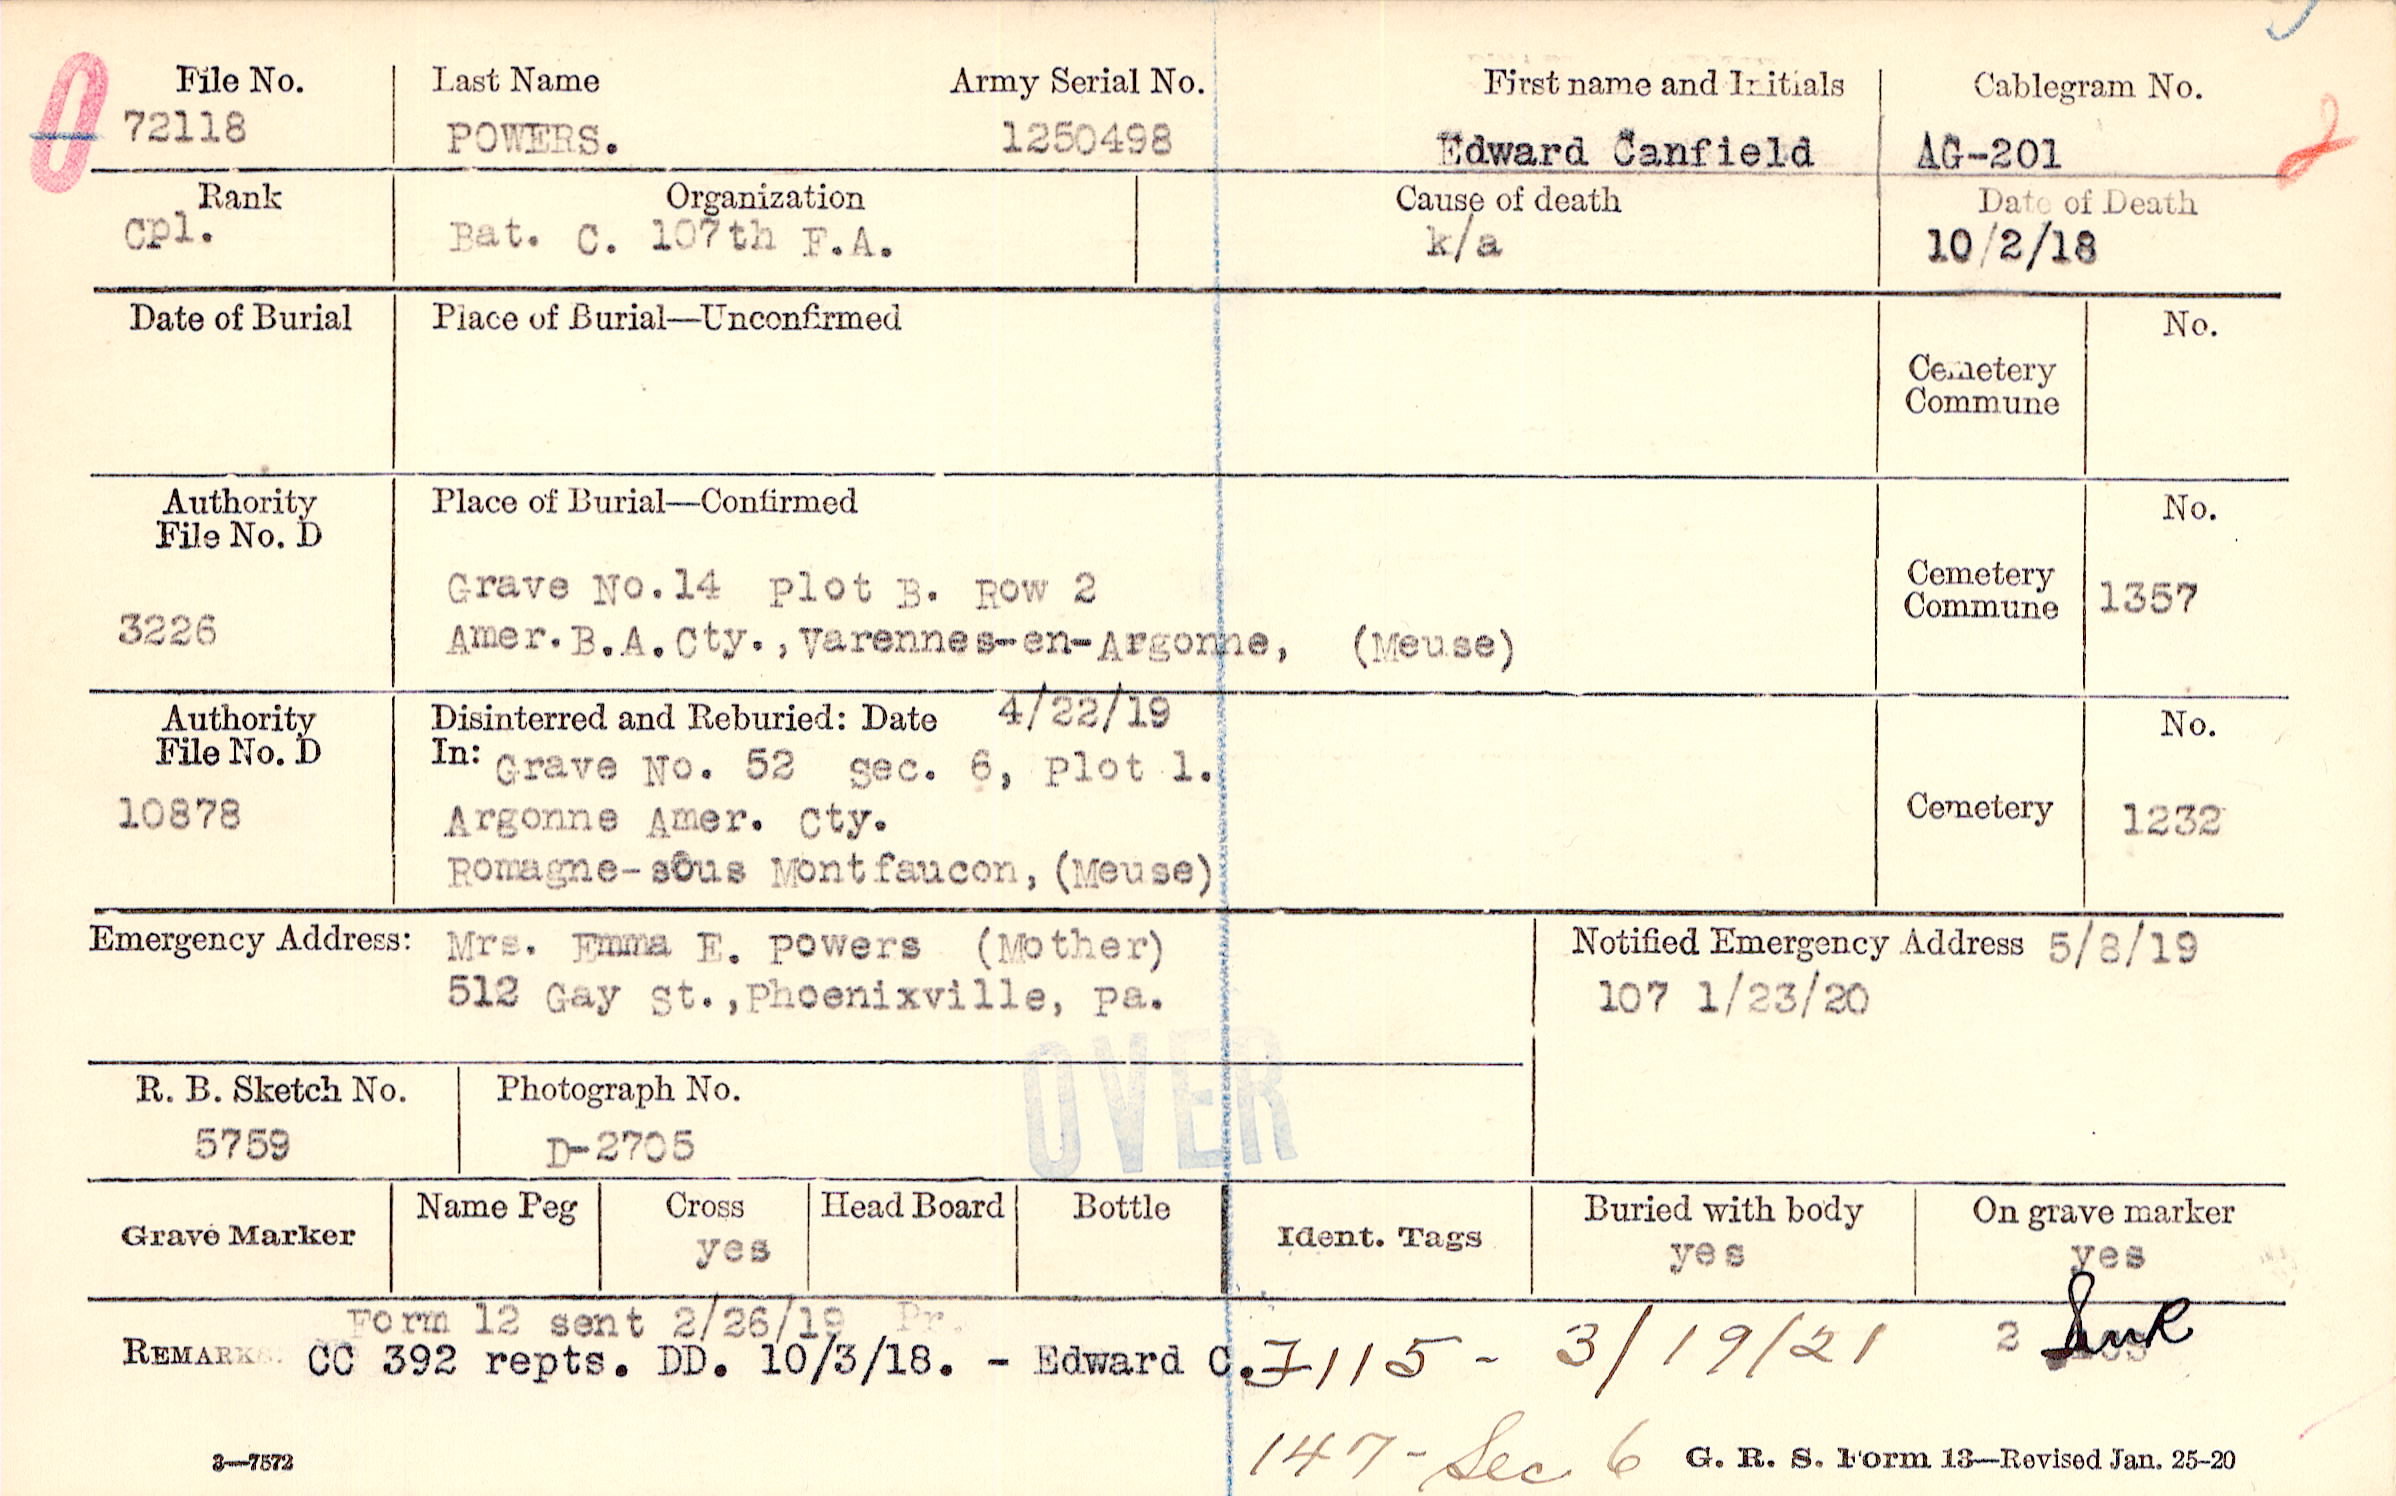 File No. Last Name Army Serial No. First name and Initials Cablegram No.
72118 POWERS. 1250498 Edward Canfield AG-201
Rank Organization Cause of death Date of Death
Cpl. Bat. C. 107th F.A. k/a 10/2/18
Date of Burial Place of Burial—Unconfirmed No.
Cemetery
Commune
Authority Place of Burial—Confirmed No.
File No. D
Grave No.14 Plot B. Row 2 Cemetery
Commune 1357
3226 Amer.B.A.Cty.,Varennes-en-Argonne, (Meuse)
Authority Disinterred and Reburied: Date 4/22/19 No.
File No. D In: Grave No. 52 Sec. 6, Plot 1.
10878 Argonne Amer. Cty. Cemetery 1232
Romagne-sous Montfaucon,(Meuse)
Emergency Address: Mrs. Emma E. Powers (Mother) Notified Emergency Address 5/8/19
512 Gay St.,Phoenixville, Pa. 107 1/23/20
OVER
R. B. Sketch No. Photograph No.
5759 D-2705
Grave Marker Name Peg Cross Head Board Bottle Ident. Tags Buried with body On grave marker
yes yes yes
Form 12 sent 2/26/19 Pr.
REMARKS: CC 392 repts. DD. 10/3/18. - Edward C. 115 - 3/19/21 2
147 - Sec 6
3—7572 G. R. S. Form 13—Revised Jan. 25-20